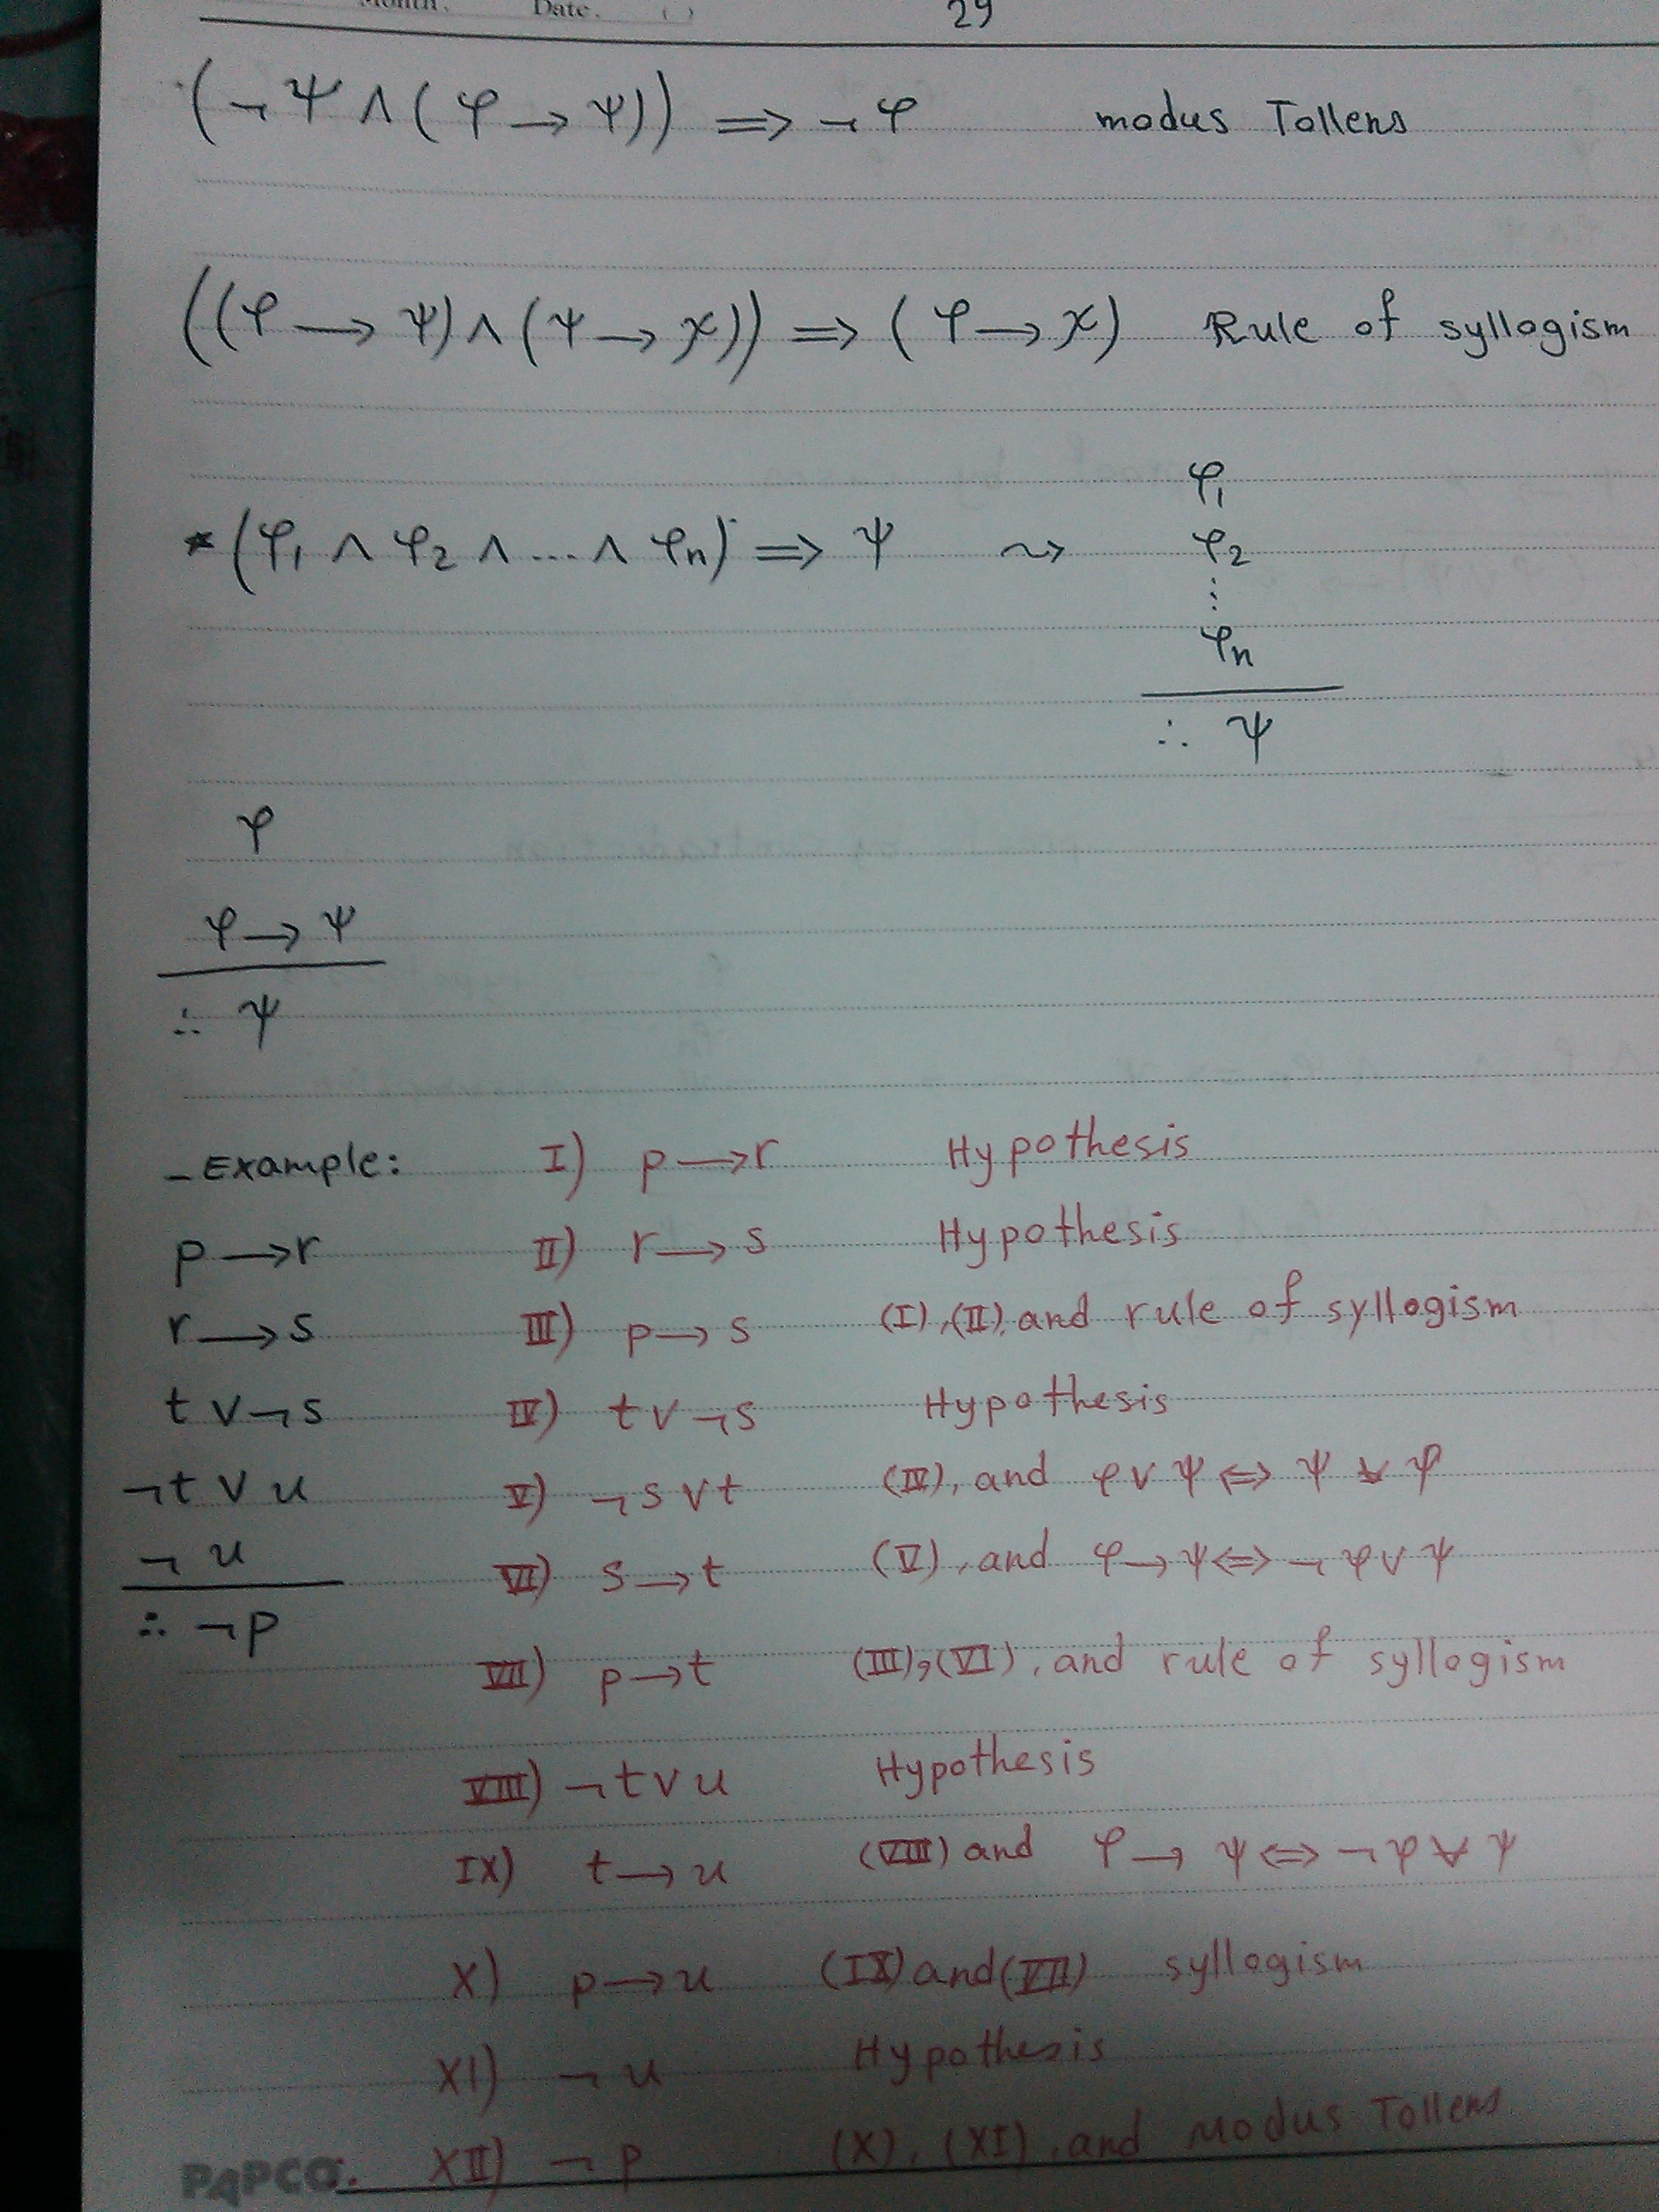 Month. Date. ( )
29
(¬ψ ∧ (φ → ψ)) ⟹ ¬φ modus Tollens
((φ → ψ) ∧ (ψ → χ)) ⟹ (φ → χ) Rule of syllogism
* (φ₁ ∧ φ₂ ∧ ... ∧ φn) ⟹ ψ ⇝
φ₁
φ₂
⋮
φn
∴ ψ
φ
φ → ψ
∴ ψ
- Example:
p → r
r → s
t ∨ ¬s
¬t ∨ u
¬u
∴ ¬p
I) p → r Hypothesis
II) r → s Hypothesis
III) p → s (I), (II), and rule of syllogism
IV) t ∨ ¬s Hypothesis
V) ¬s ∨ t (IV), and φ ∨ ψ ⟺ ψ ∨ φ
VI) s → t (V), and φ → ψ ⟺ ¬φ ∨ ψ
VII) p → t (III), (VI), and rule of syllogism
VIII) ¬t ∨ u Hypothesis
IX) t → u (VIII) and φ → ψ ⟺ ¬φ ∨ ψ
X) p → u (IX) and (VII) syllogism
XI) ¬u Hypothesis
XII) ¬p (X), (XI), and Modus Tollens
PAPCO.